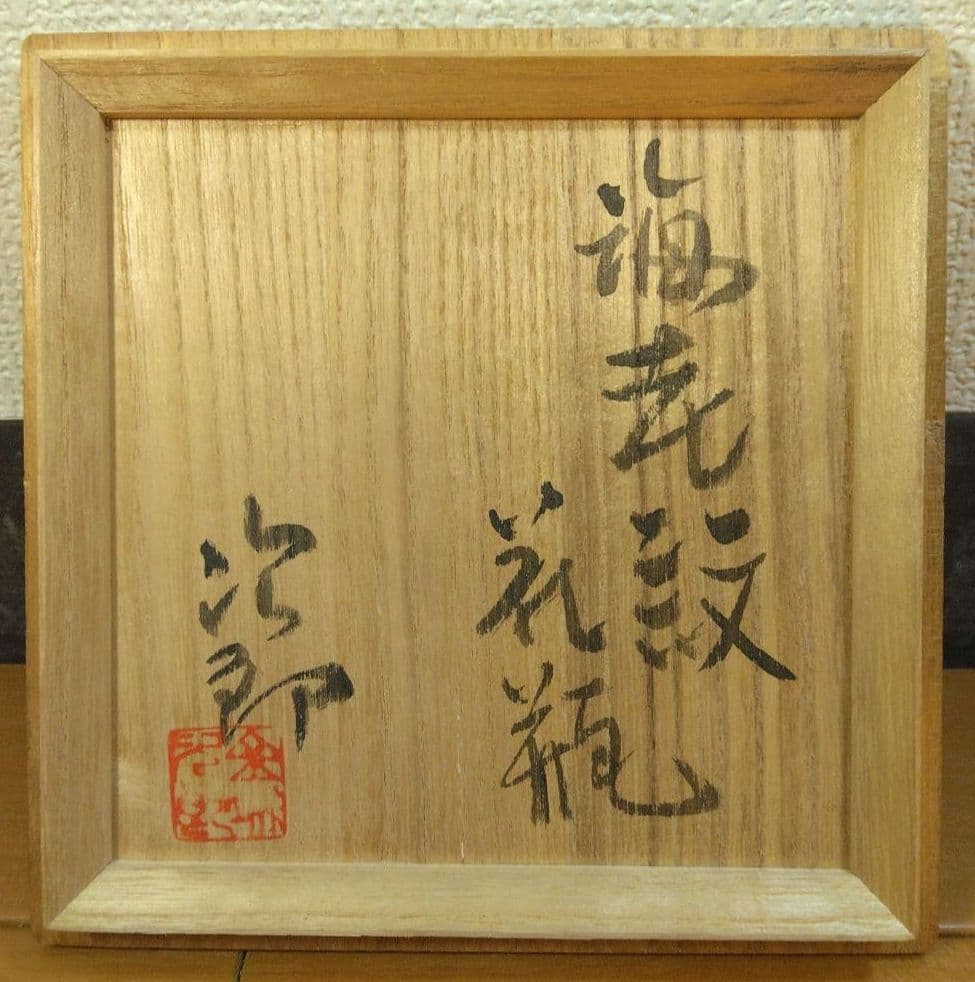 海老紋
花瓶
次郎